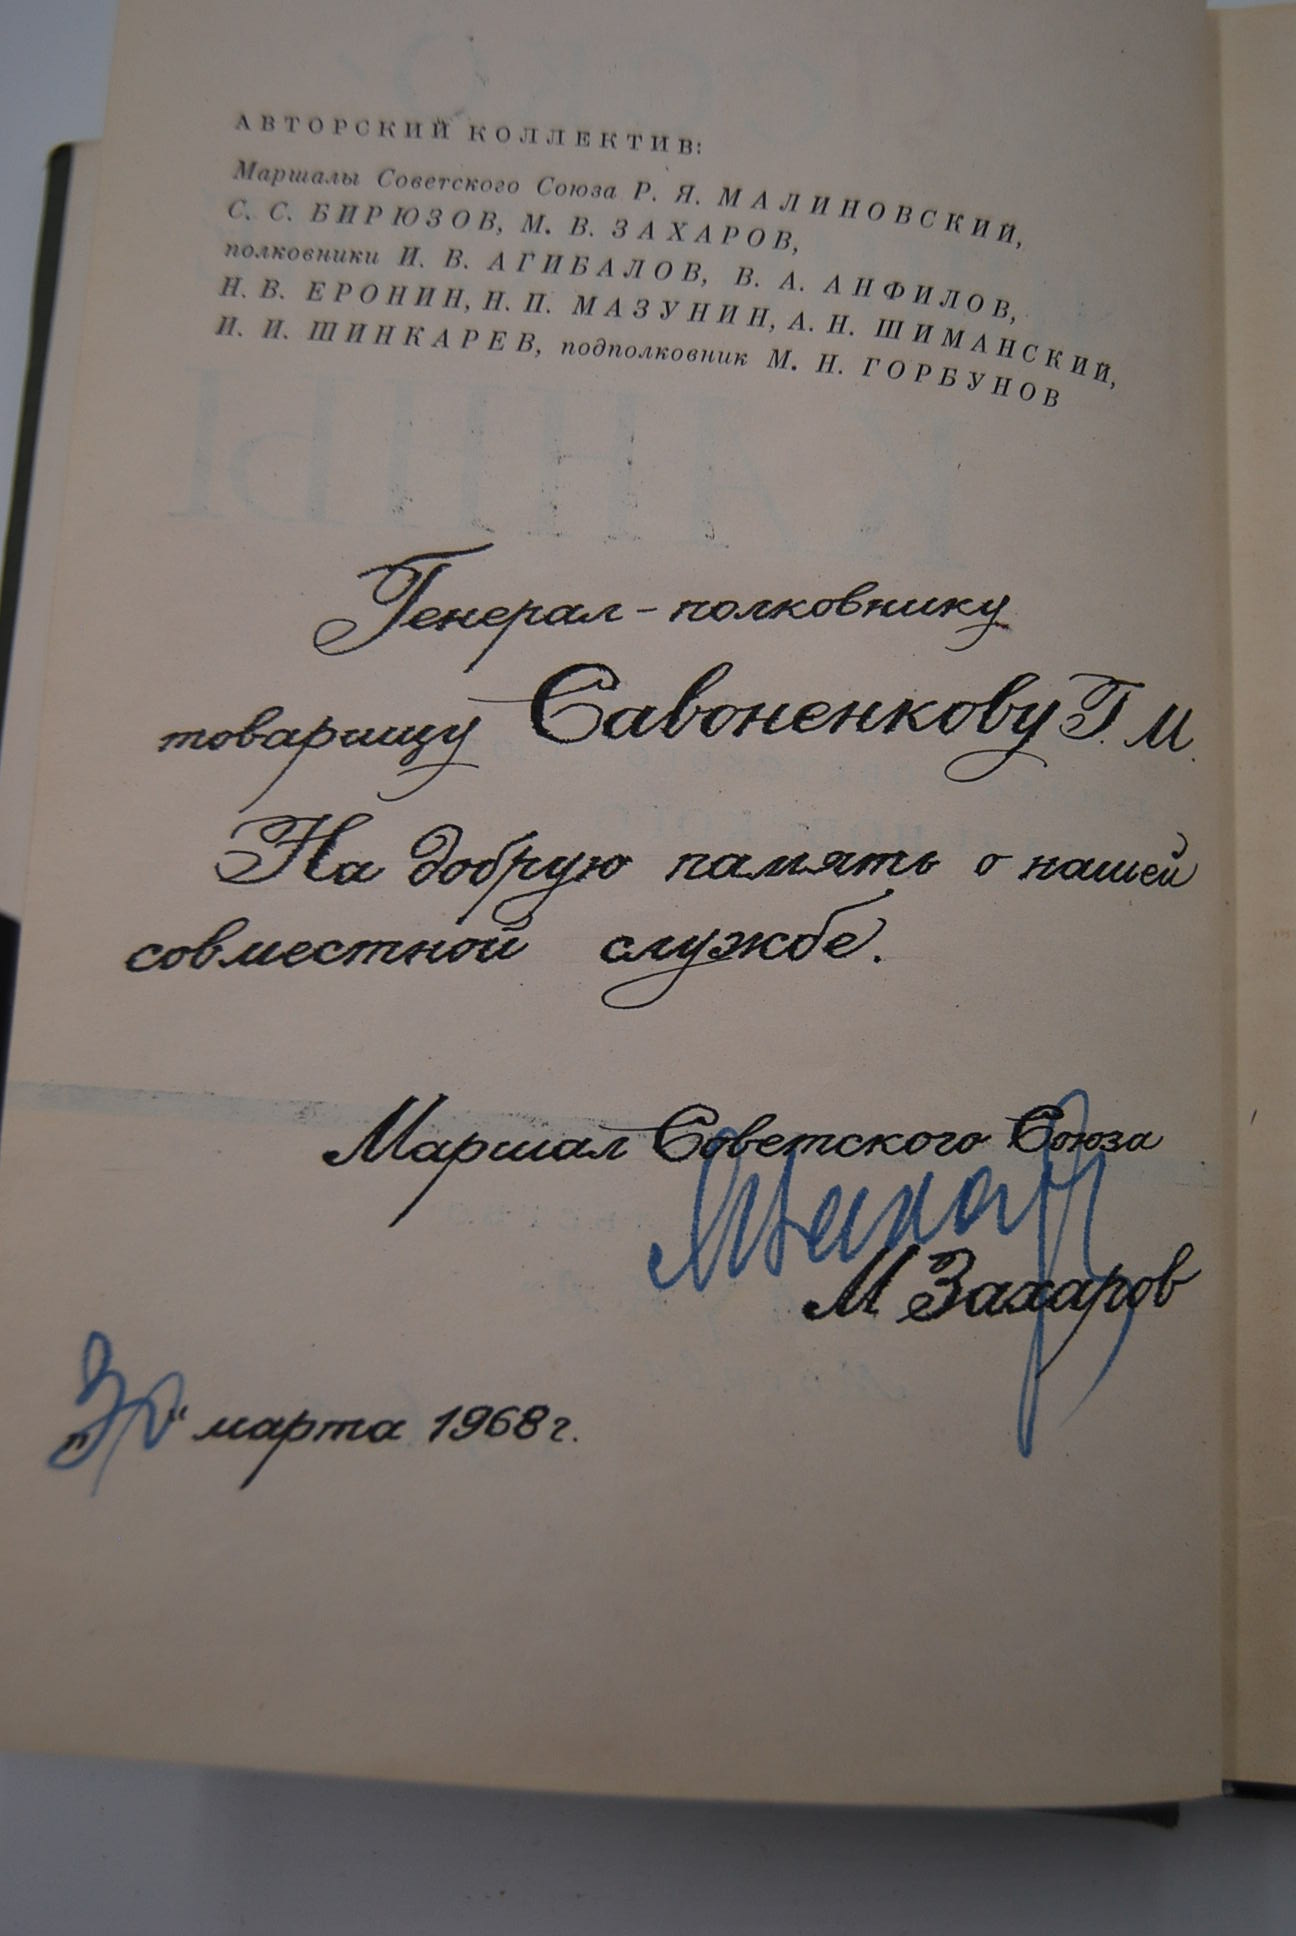 АВТОРСКИЙ КОЛЛЕКТИВ:
Маршалы Советского Союза Р. Я. МАЛИНОВСКИЙ,
С. С. БИРЮЗОВ, М. В. ЗАХАРОВ,
полковники И. В. АГИБАЛОВ, В. А. АНФИЛОВ,
Н. В. ЕРОНИН, Н. П. МАЗУНИН, А. Н. ШИМАНСКИЙ,
И. И. ШИНКАРЕВ, подполковник М. Н. ГОРБУНОВ
Генерал-полковнику
товарищу Савоненкову Г. М.
На добрую память о нашей
совместной службе.
Маршал Советского Союза
МЗахаров
М Захаров
"30" марта 1968 г.